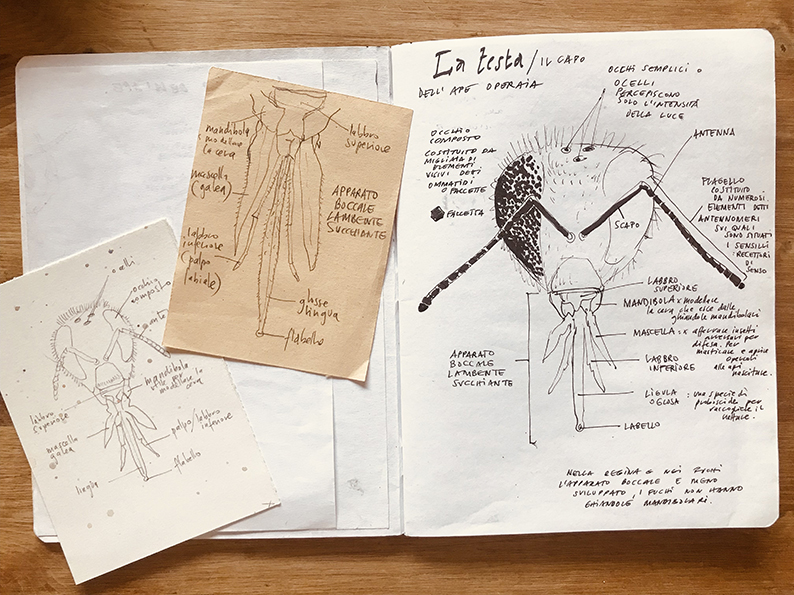 La testa / IL CAPO
DELL'APE OPERAIA
OCCHI SEMPLICI O
OCELLI
PERCEPISCONO
SOLO L'INTENSITÀ
DELLA LUCE
ANTENNA
OCCHIO
COMPOSTO
COSTITUITO DA
MIGLIAIA DI
ELEMENTI
VISIVI DETI
OMMATIDI
O FACCETTE
FACCETTA
FLAGELLO
COSTITUITO
DA NUMEROSI
ELEMENTI DETTI
ANTENNOMERI
SUI QUALI
SONO SITUATI
I SENSILLI
RECETTORI
DI
SENSO
SCAPO
LABBRO
SUPERIORE
MANDIBOLA x modellare
la cera che esce dalle
ghiandole mandibolari
MASCELLA: x afferrare insetti
difesa. Per
masticare e aprire
opercoli
alle api
nasciture.
LABBRO
INFERIORE
LIGULA
O GLOSSA
: una specie di
proboscide per
raccogliere il
nettare.
LABELLO
APPARATO
BOCCALE
LAMBENTE
SUCCHIANTE
NELLA REGINA E NEI FUCHI
L'APPARATO BOCCALE È MENO
SVILUPPATO, I FUCHI NON HANNO
GHIANDOLE MANDIBOLARI.
mandibola
x modellare
la cera
labbro
superiore
mascella
(galea)
APPARATO
BOCCALE
LAMBENTE
SUCCHIANTE
labbro
inferiore
(palpo
labiale)
glosse
lingua
flabello
ocelli
occhio
composto
mandibola
utile per
modellare la
cera
labbro
superiore
mascella
galea
palpo/labbro
inferiore
lingua
flabello